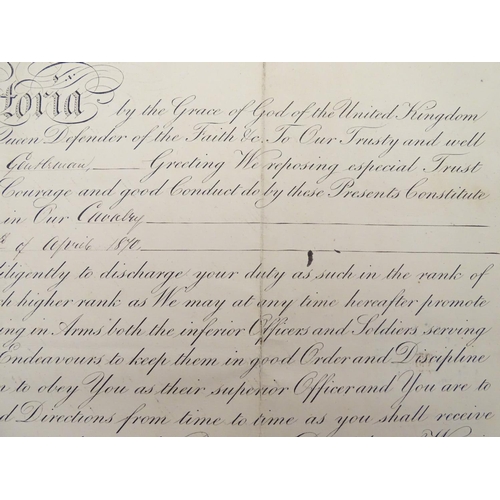 toria by the Grace of God of the United Kingdom
Queen Defender of the Faith &c. To Our Trusty and well
Gentleman, Greeting We reposing especial Trust
Courage and good Conduct do by these Presents Constitute
in Our Cavalry
of April 1870
diligently to discharge your duty as such in the rank of
higher rank as We may at any time hereafter promote
ing in Arms both the inferior Officers and Soldiers serving
Endeavours to keep them in good Order and Discipline
to obey You as their superior Officer and You are to
d Directions from time to time as you shall receive